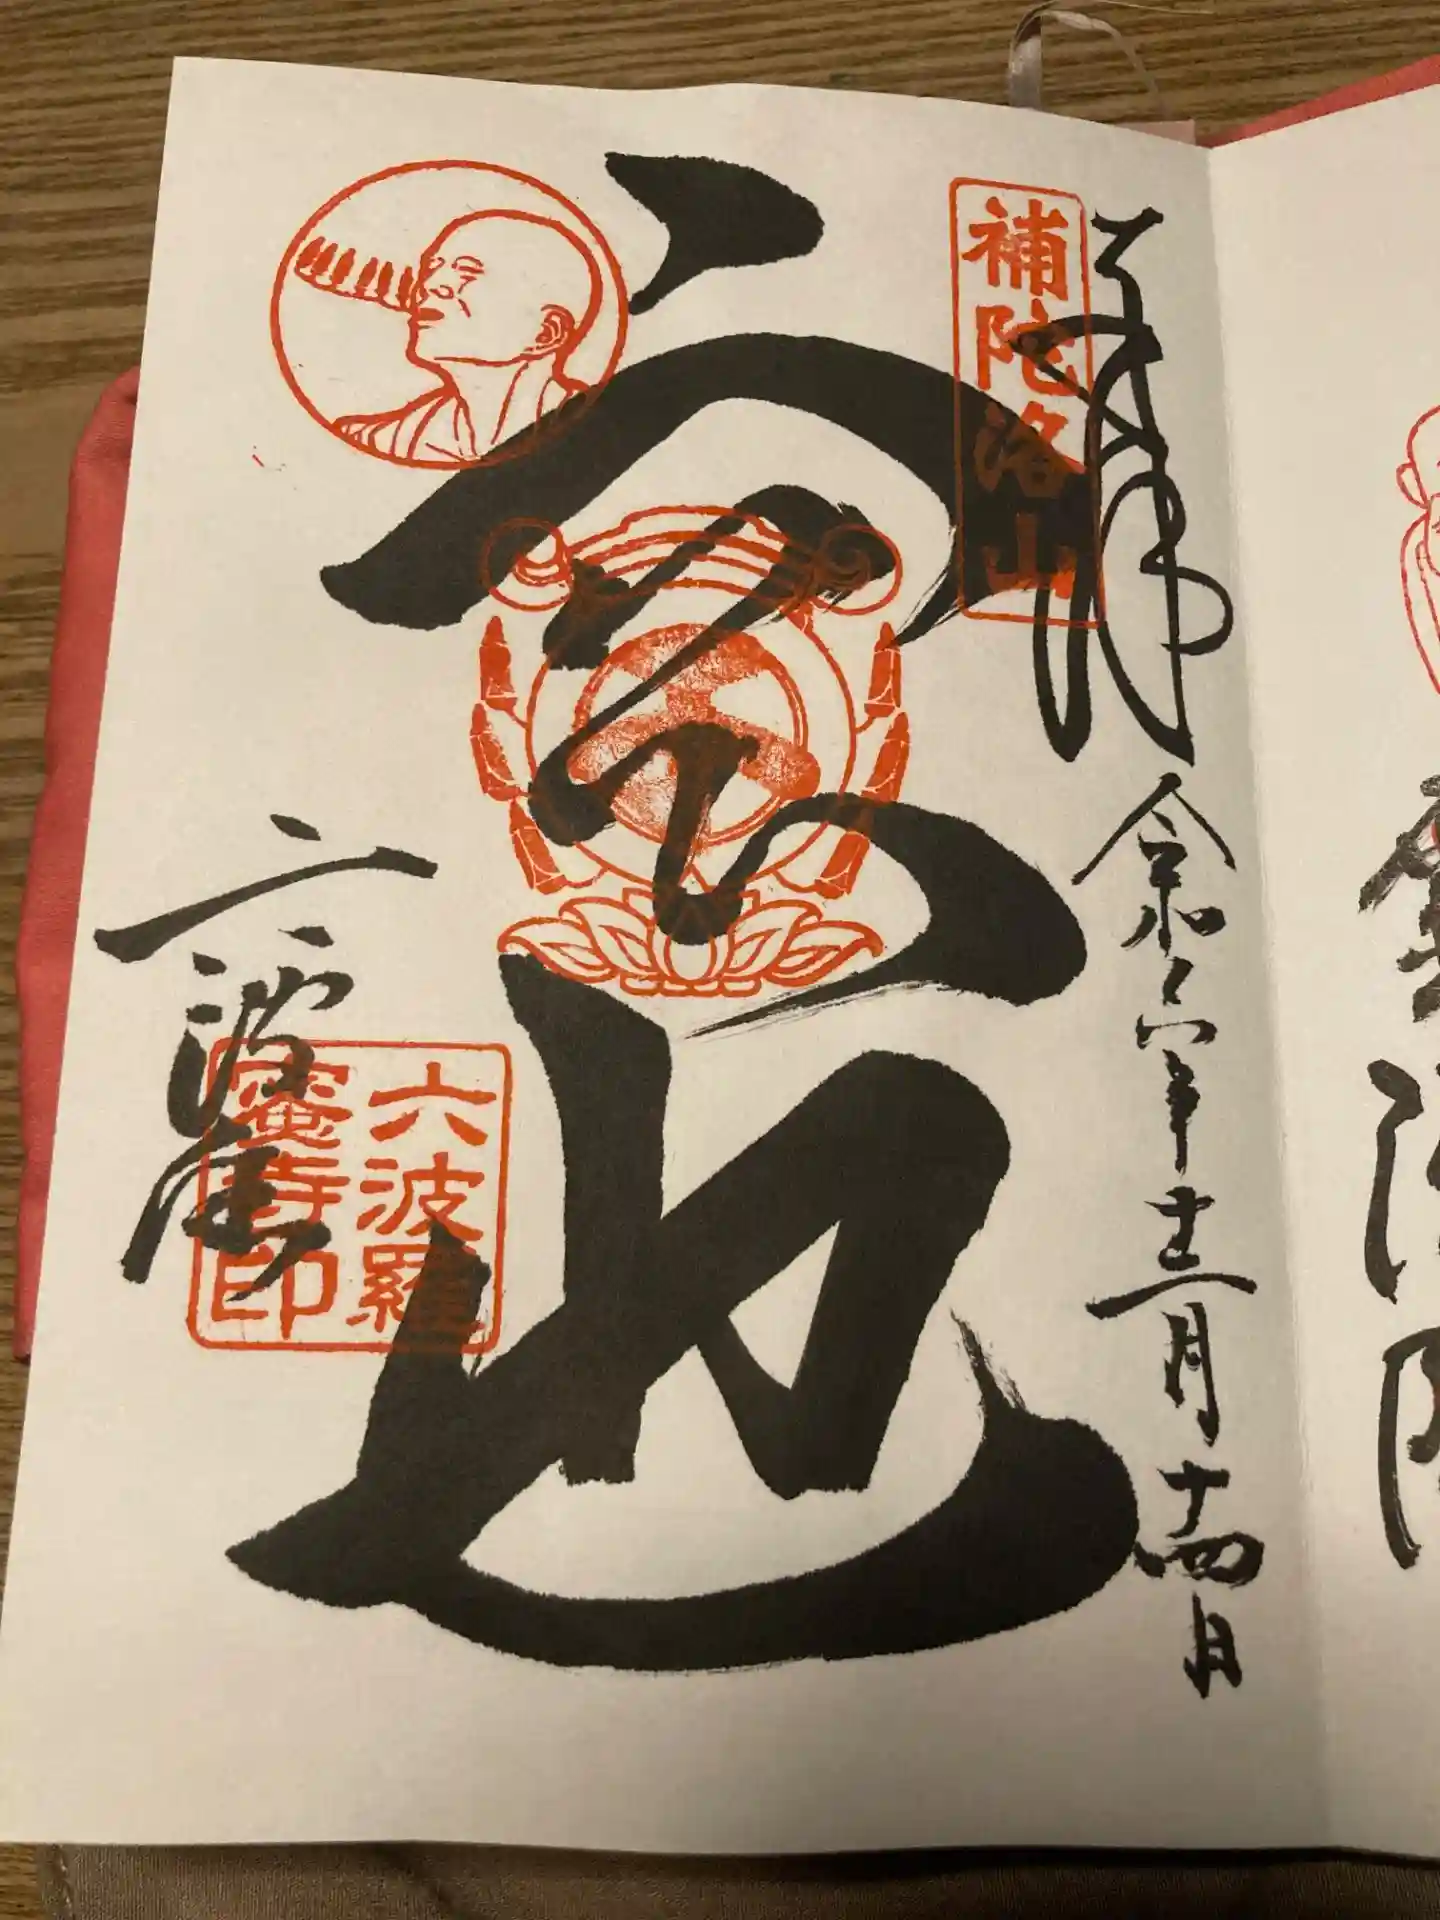 補陀洛山
奉拝
令和六年十二月十四日
空也
六波羅
六波羅
蜜寺印